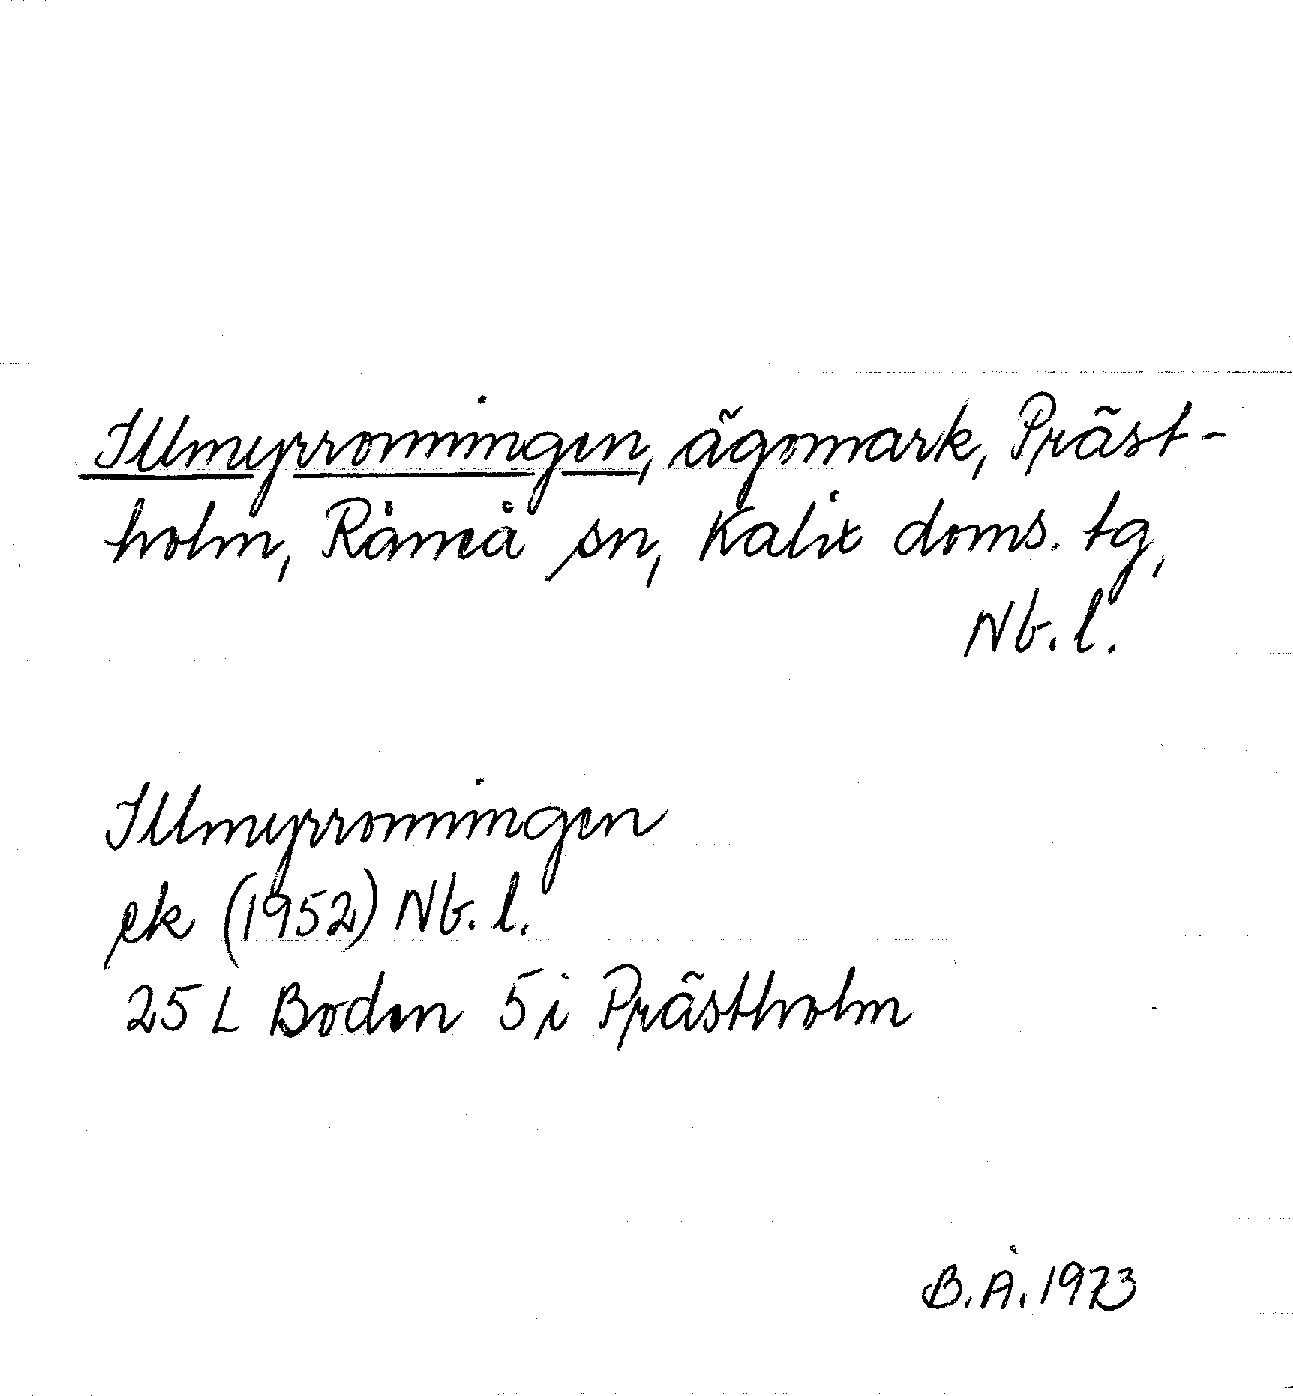 Illmyrronningen, ägomark, Präst-
holm, Råneå sn, Kalix doms. tg,
Nb. l.
Illmyrronningen
ek (1952) Nb. l.
25 L Boden 5 i Prästholm
B.Å. 1973